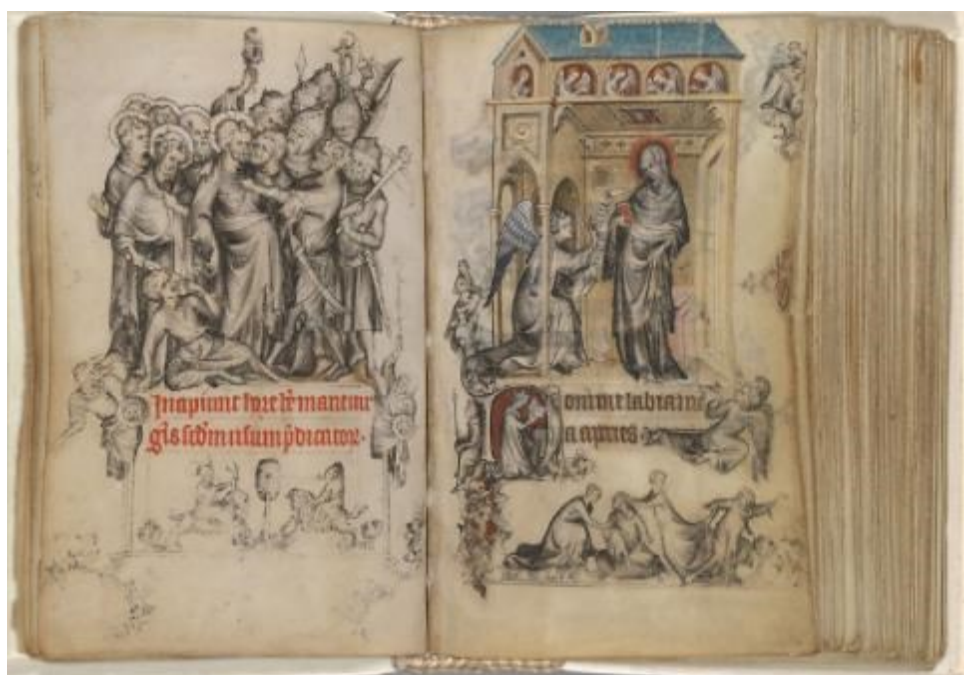 Incipiunt hore bē marie uir
gīs scd̄m usum p̄dicator.
Domine labia me
a aperies